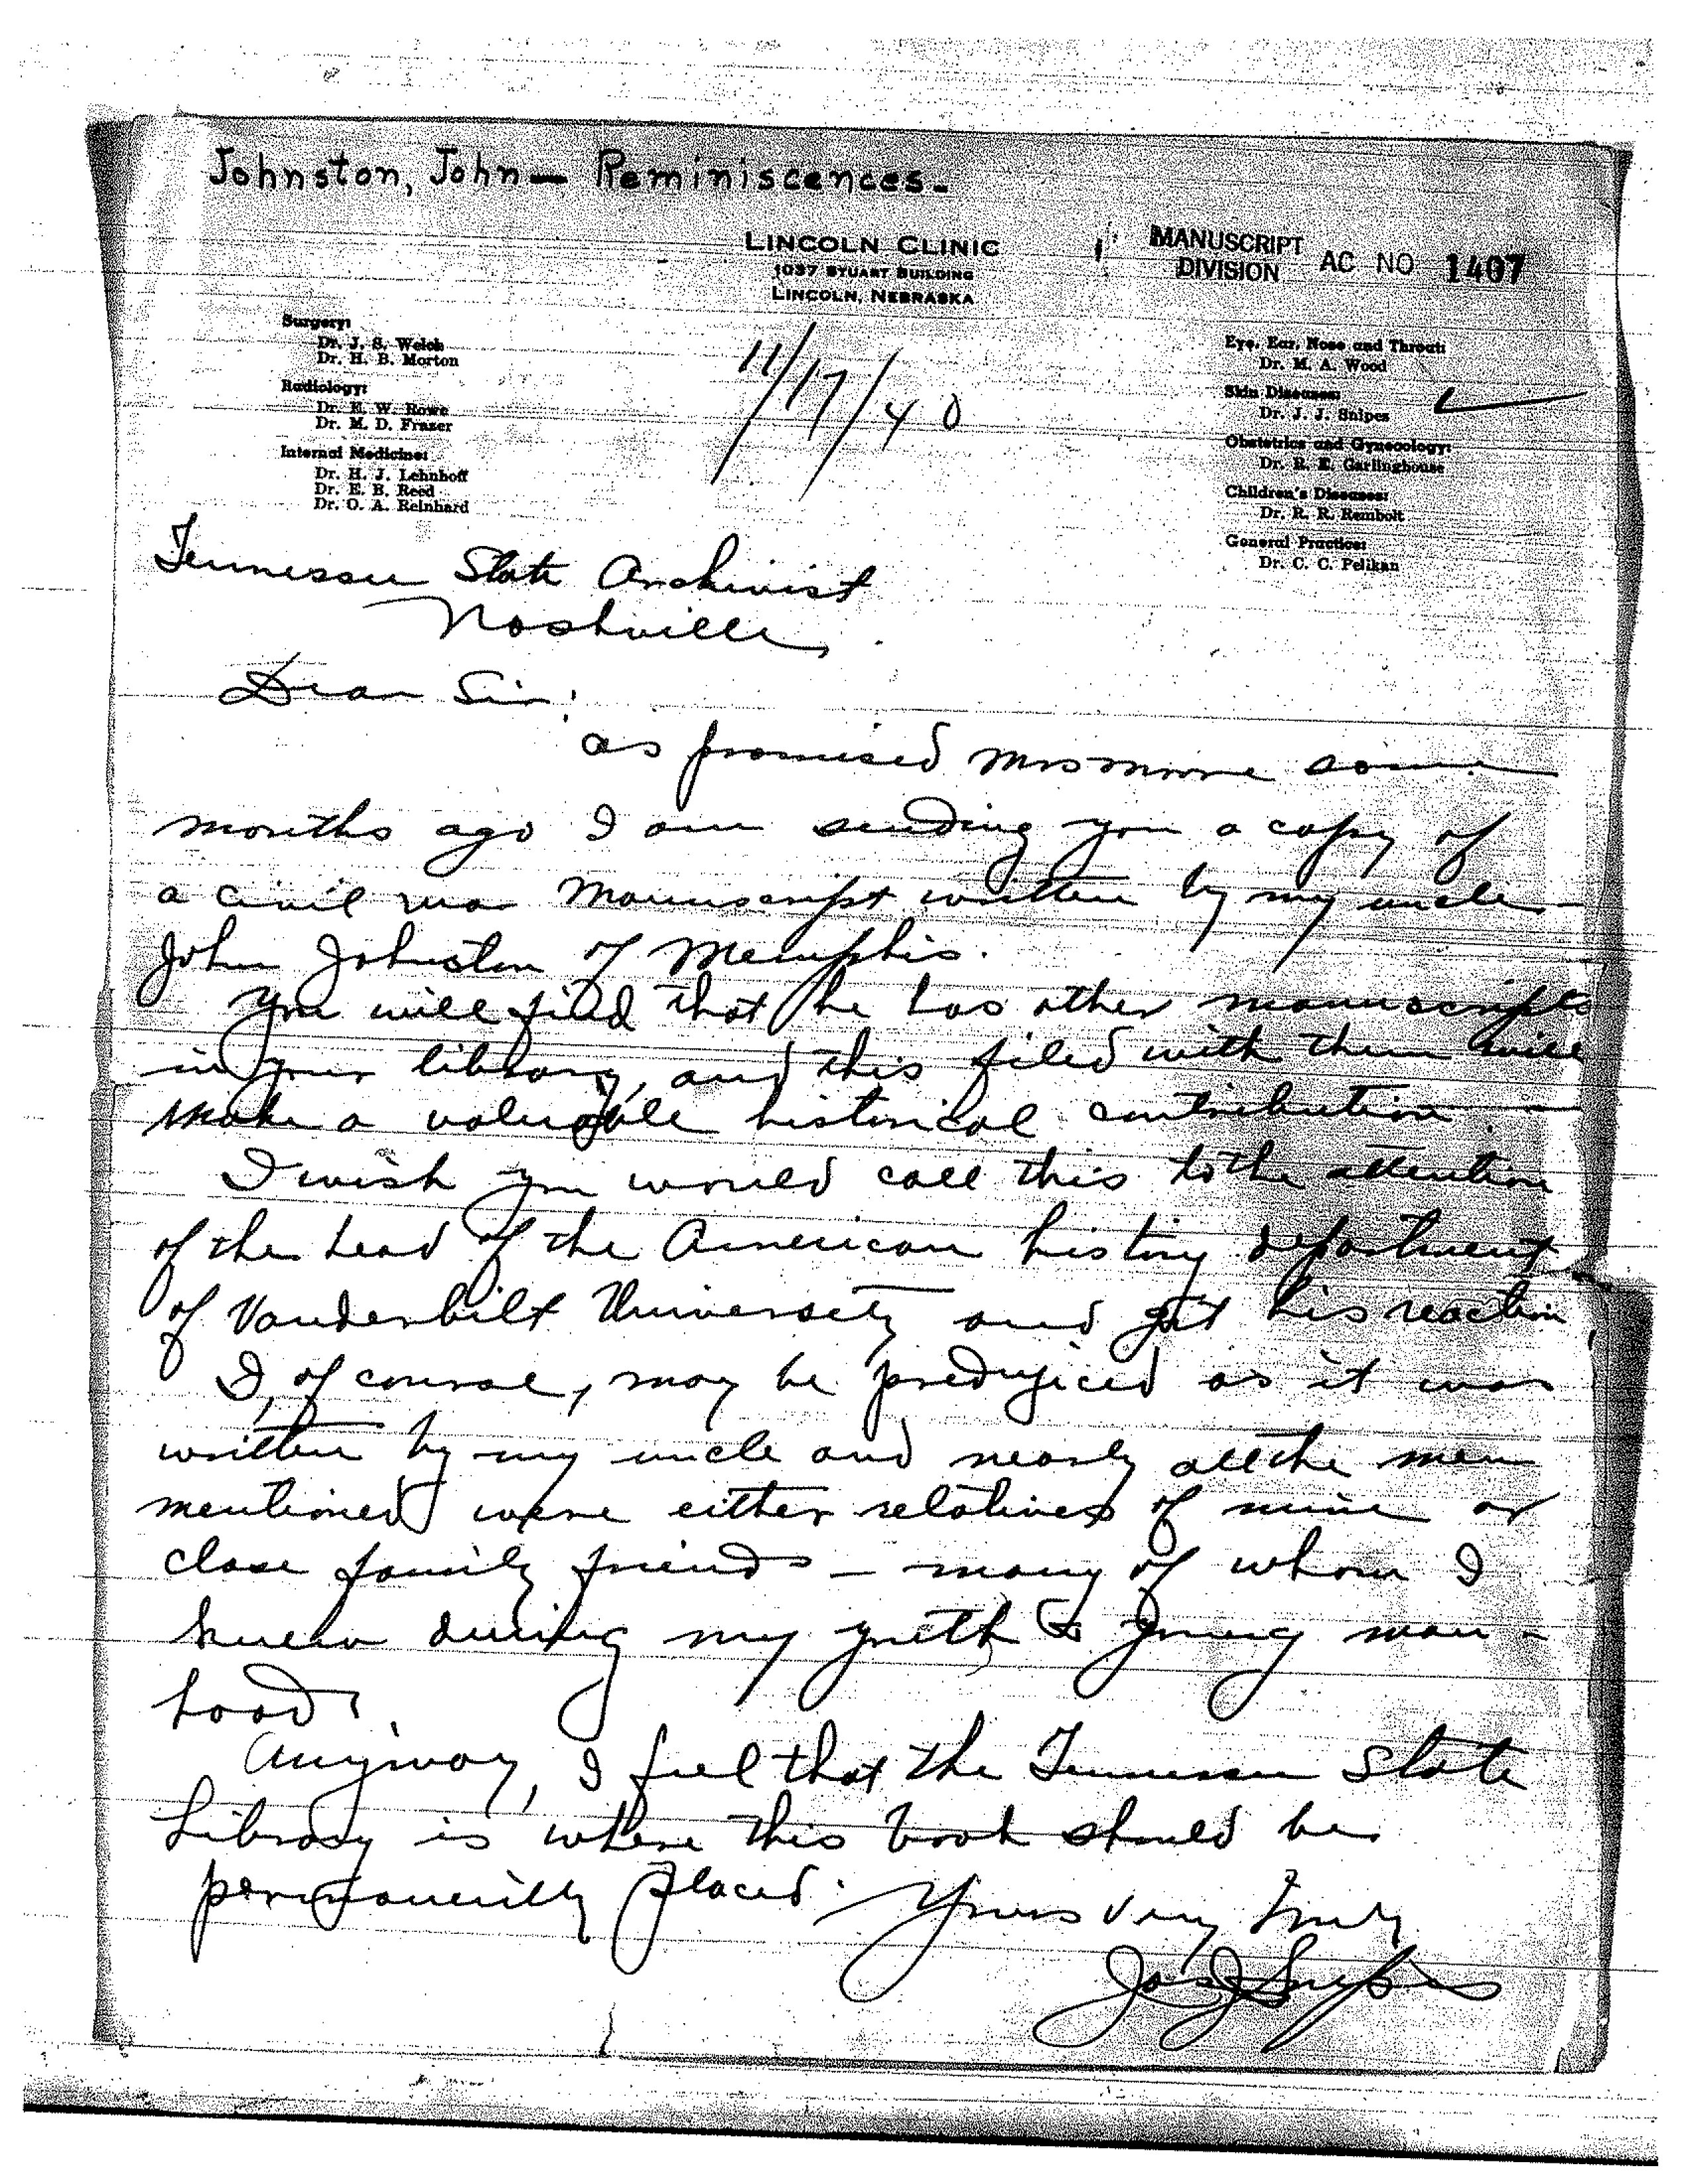 Johnston, John — Reminiscences.
LINCOLN CLINIC
1037 STUART BUILDING
LINCOLN, NEBRASKA
MANUSCRIPT
DIVISION
AC NO 1407
Surgery:
Dr. J. S. Welch
Dr. H. B. Morton
Radiology:
Dr. E. W. Rowe
Dr. M. D. Frazer
Internal Medicine:
Dr. H. J. Lehnhoff
Dr. E. B. Reed
Dr. O. A. Reinhard
11/17/40
Eye, Ear, Nose and Throat:
Dr. M. A. Wood
Skin Diseases:
Dr. J. J. Snipes
Obstetrics and Gynecology:
Dr. R. E. Garlinghouse
Children's Diseases:
Dr. R. R. Rembolt
General Practice:
Dr. C. C. Pelikan
Tennessee State Archivist
Nashville,
Dear Sir:
As promised Mrs Moore some
months ago I am sending you a copy of
a civil war manuscript written by my uncle
John Johnston of Memphis.
You will find that he has other manuscripts
in your library, and this filed with them will
make a valuable historical contribution.
I wish you would call this to the attention
of the head of the American history department
of Vanderbilt University and get his reaction.
I, of course, may be predujiced as it was
written by my uncle and nearly all the men
mentioned were either relatives of mine or
close family friends — many of whom I
knew during my youth & young man-
hood.
Anyway, I feel that the Tennessee State
Library is where this book should be
permanently placed.
Yours Very Truly
Jas J Snipes